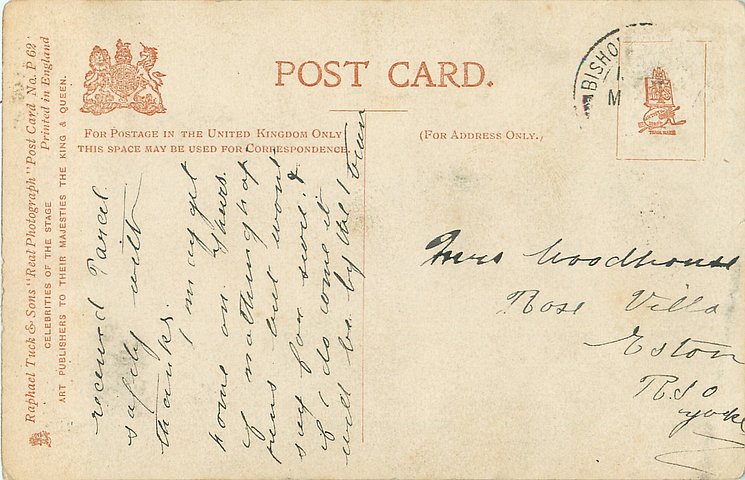 Raphael Tuck & Sons "Real Photograph" Post Card No. P 62
CELEBRITIES OF THE STAGE Printed in England
ART PUBLISHERS TO THEIR MAJESTIES THE KING & QUEEN.
POST CARD.
FOR POSTAGE IN THE UNITED KINGDOM ONLY
THIS SPACE MAY BE USED FOR CORRESPONDENCE.
(FOR ADDRESS ONLY.)
BISHO
M
TRADE MARK
received Parcel
safely with
thanks.
I may get
home on Thurs.
if nothing hap
pens but wont
say for sure. &
if I do come it
will be by the 1 train
Mrs Woodhouse
Rose Villa
Eston
R.S.O
Yorks